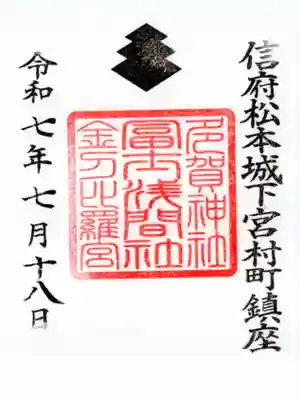 信府松本城下宮村町鎮座
多賀神社
冨士浅間社
金刀比羅宮
令和七年七月十八日